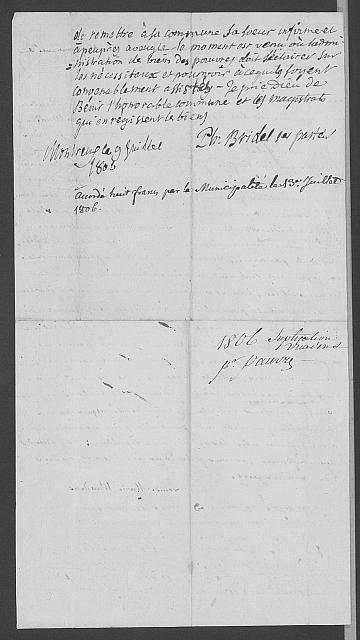 de remettre à sa commune sa soeur infirme et
à peuprès aveugle le moment est venu où l'admi-
nistration de bien des pauvres doit s'éclairer sur
les nécessiteux et pourvoir à ce quils soyent
convenablement assistés – Je prie Dieu de
Bénir l'honorable commune et les magistrats
qui en régissent les biens
Ph. Bridel
Montreux le 9 Juillet
1806
accordé huit francs par la Municipalité le 13e Juillet
1806.
1806 Suplication
pr. pauvre